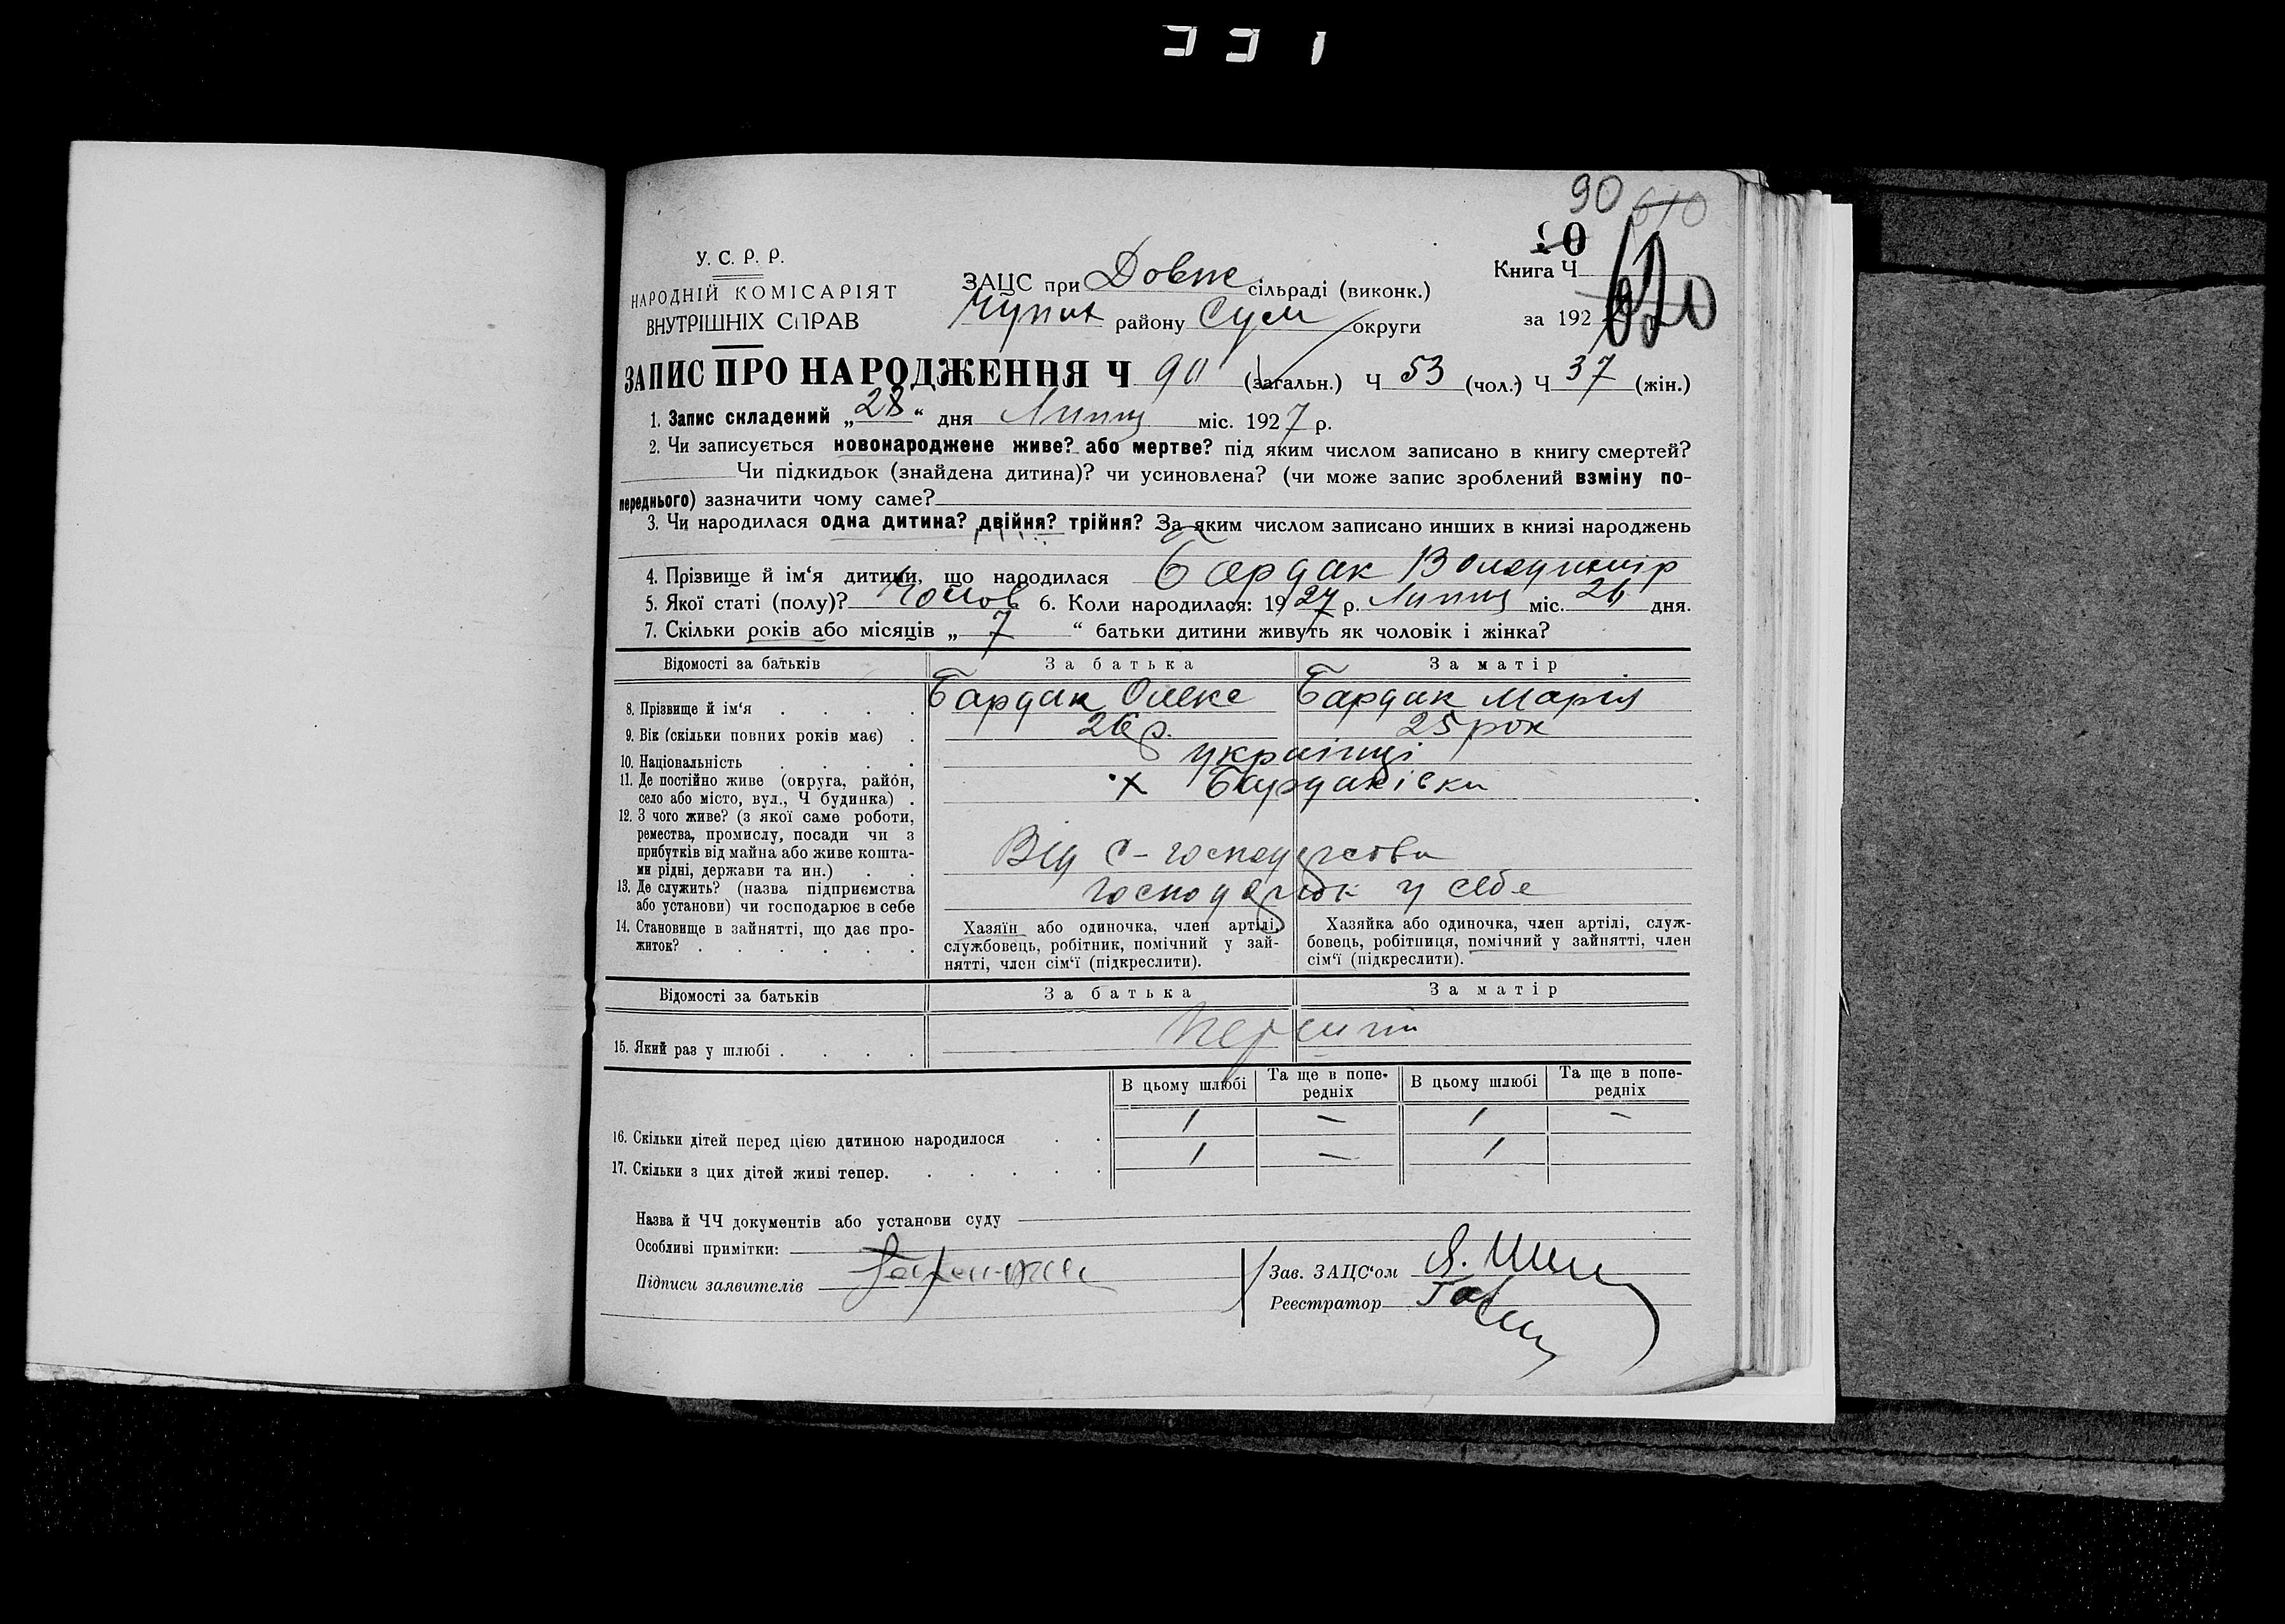 331
90 610
10 620
У. С. Р. Р.
НАРОДНІЙ КОМІСАРІЯТ
ВНУТРІШНІХ СПРАВ
ЗАЦС при Довж сільраді (виконк.)
Чупах району Сум округи
Книга Ч
за 192
ЗАПИС ПРО НАРОДЖЕННЯ Ч 90 (загальн.) Ч 53 (чол.) Ч 37 (жін.)
1. Запис складений „28“ дня Липця міс. 1927 р.
2. Чи записується новонароджене живе? або мертве? під яким числом записано в книгу смертей?
Чи підкидьок (знайдена дитина)? чи усиновлена? (чи може запис зроблений взміну по-
переднього) зазначити чому саме?
3. Чи народилася одна дитина? двійня? трійня? За яким числом записано инших в книзі народжень
4. Прізвище й ім‘я дитини, що народилася Бардак Володимир
5. Якої статі (полу)? Чолов 6. Коли народилася: 1927 р. Липця міс. 26 дня.
7. Скільки років або місяців „ 7 “ батьки дитини живуть як чоловік і жінка?
Відомості за батьків За батька За матір
8. Прізвище й ім‘я Бардак Олекс Бардак Марія
9. Вік (скільки повних років має) 26 р. 25 рок
10. Національність українці
11. Де постійно живе (округа, район,
село або місто, вул., Ч будинка) х Бардаківка
12. З чого живе? (з якої саме роботи,
ремества, промислу, посади чи з
прибутків від майна або живе кошта-
ми рідні, держави та ин.) Від с-господарства
13. Де служить? (назва підприємства
або установи) чи господарює в себе господарює у себе
14. Становище в зайнятті, що дає про-
житок?
Хазяїн або одиночка, член артілі,
службовець, робітник, помічний у зай-
нятті, член сім‘ї (підкреслити).
Хазяйка або одиночка, член артілі, служ-
бовець, робітниця, помічний у зайнятті, член
сім‘ї (підкреслити).
Відомості за батьків За батька За матір
15. Який раз у шлюбі
В цьому шлюбі Та ще в попе-редніх В цьому шлюбі Та ще в попе-редніх
16. Скільки дітей перед цією дитиною народилося 1 — 1 —
17. Скільки з цих дітей живі тепер. 1 — 1
Назва й ЧЧ документів або установи суду
Особливі примітки:
Підписи заявителів
Зав. ЗАЦС‘ом
Реєстратор